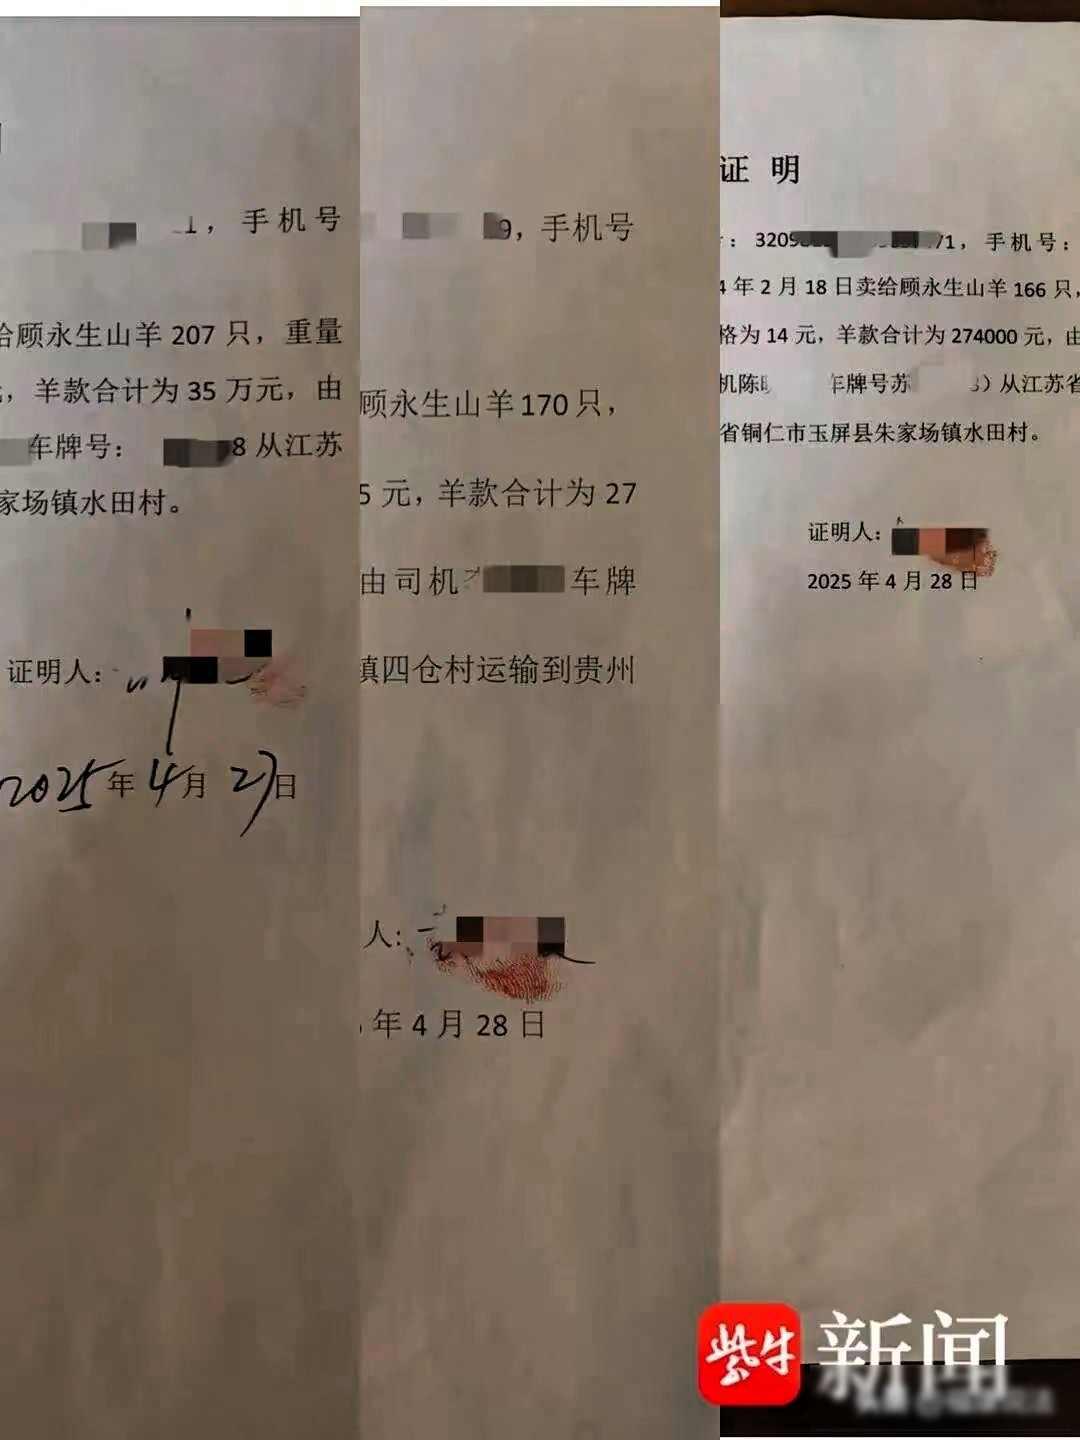 1，手机号
给顾永生山羊 207 只，重量
，羊款合计为 35 万元，由
车牌号： 8 从江苏
家场镇水田村。
证明人：
2025年 4月 27日
9，手机号
顾永生山羊170只，
5 元，羊款合计为 27
由司机 车牌
镇四仓村运输到贵州
人：
年 4 月 28 日
证 明
：3209 71，手机号：
4 年 2 月 18 日卖给顾永生山羊 166 只，
格为 14 元，羊款合计为 274000 元，由
机陈 车牌号苏 8）从江苏省
省铜仁市玉屏县朱家场镇水田村。
证明人：
2025 年 4 月 28 日
紫牛新闻